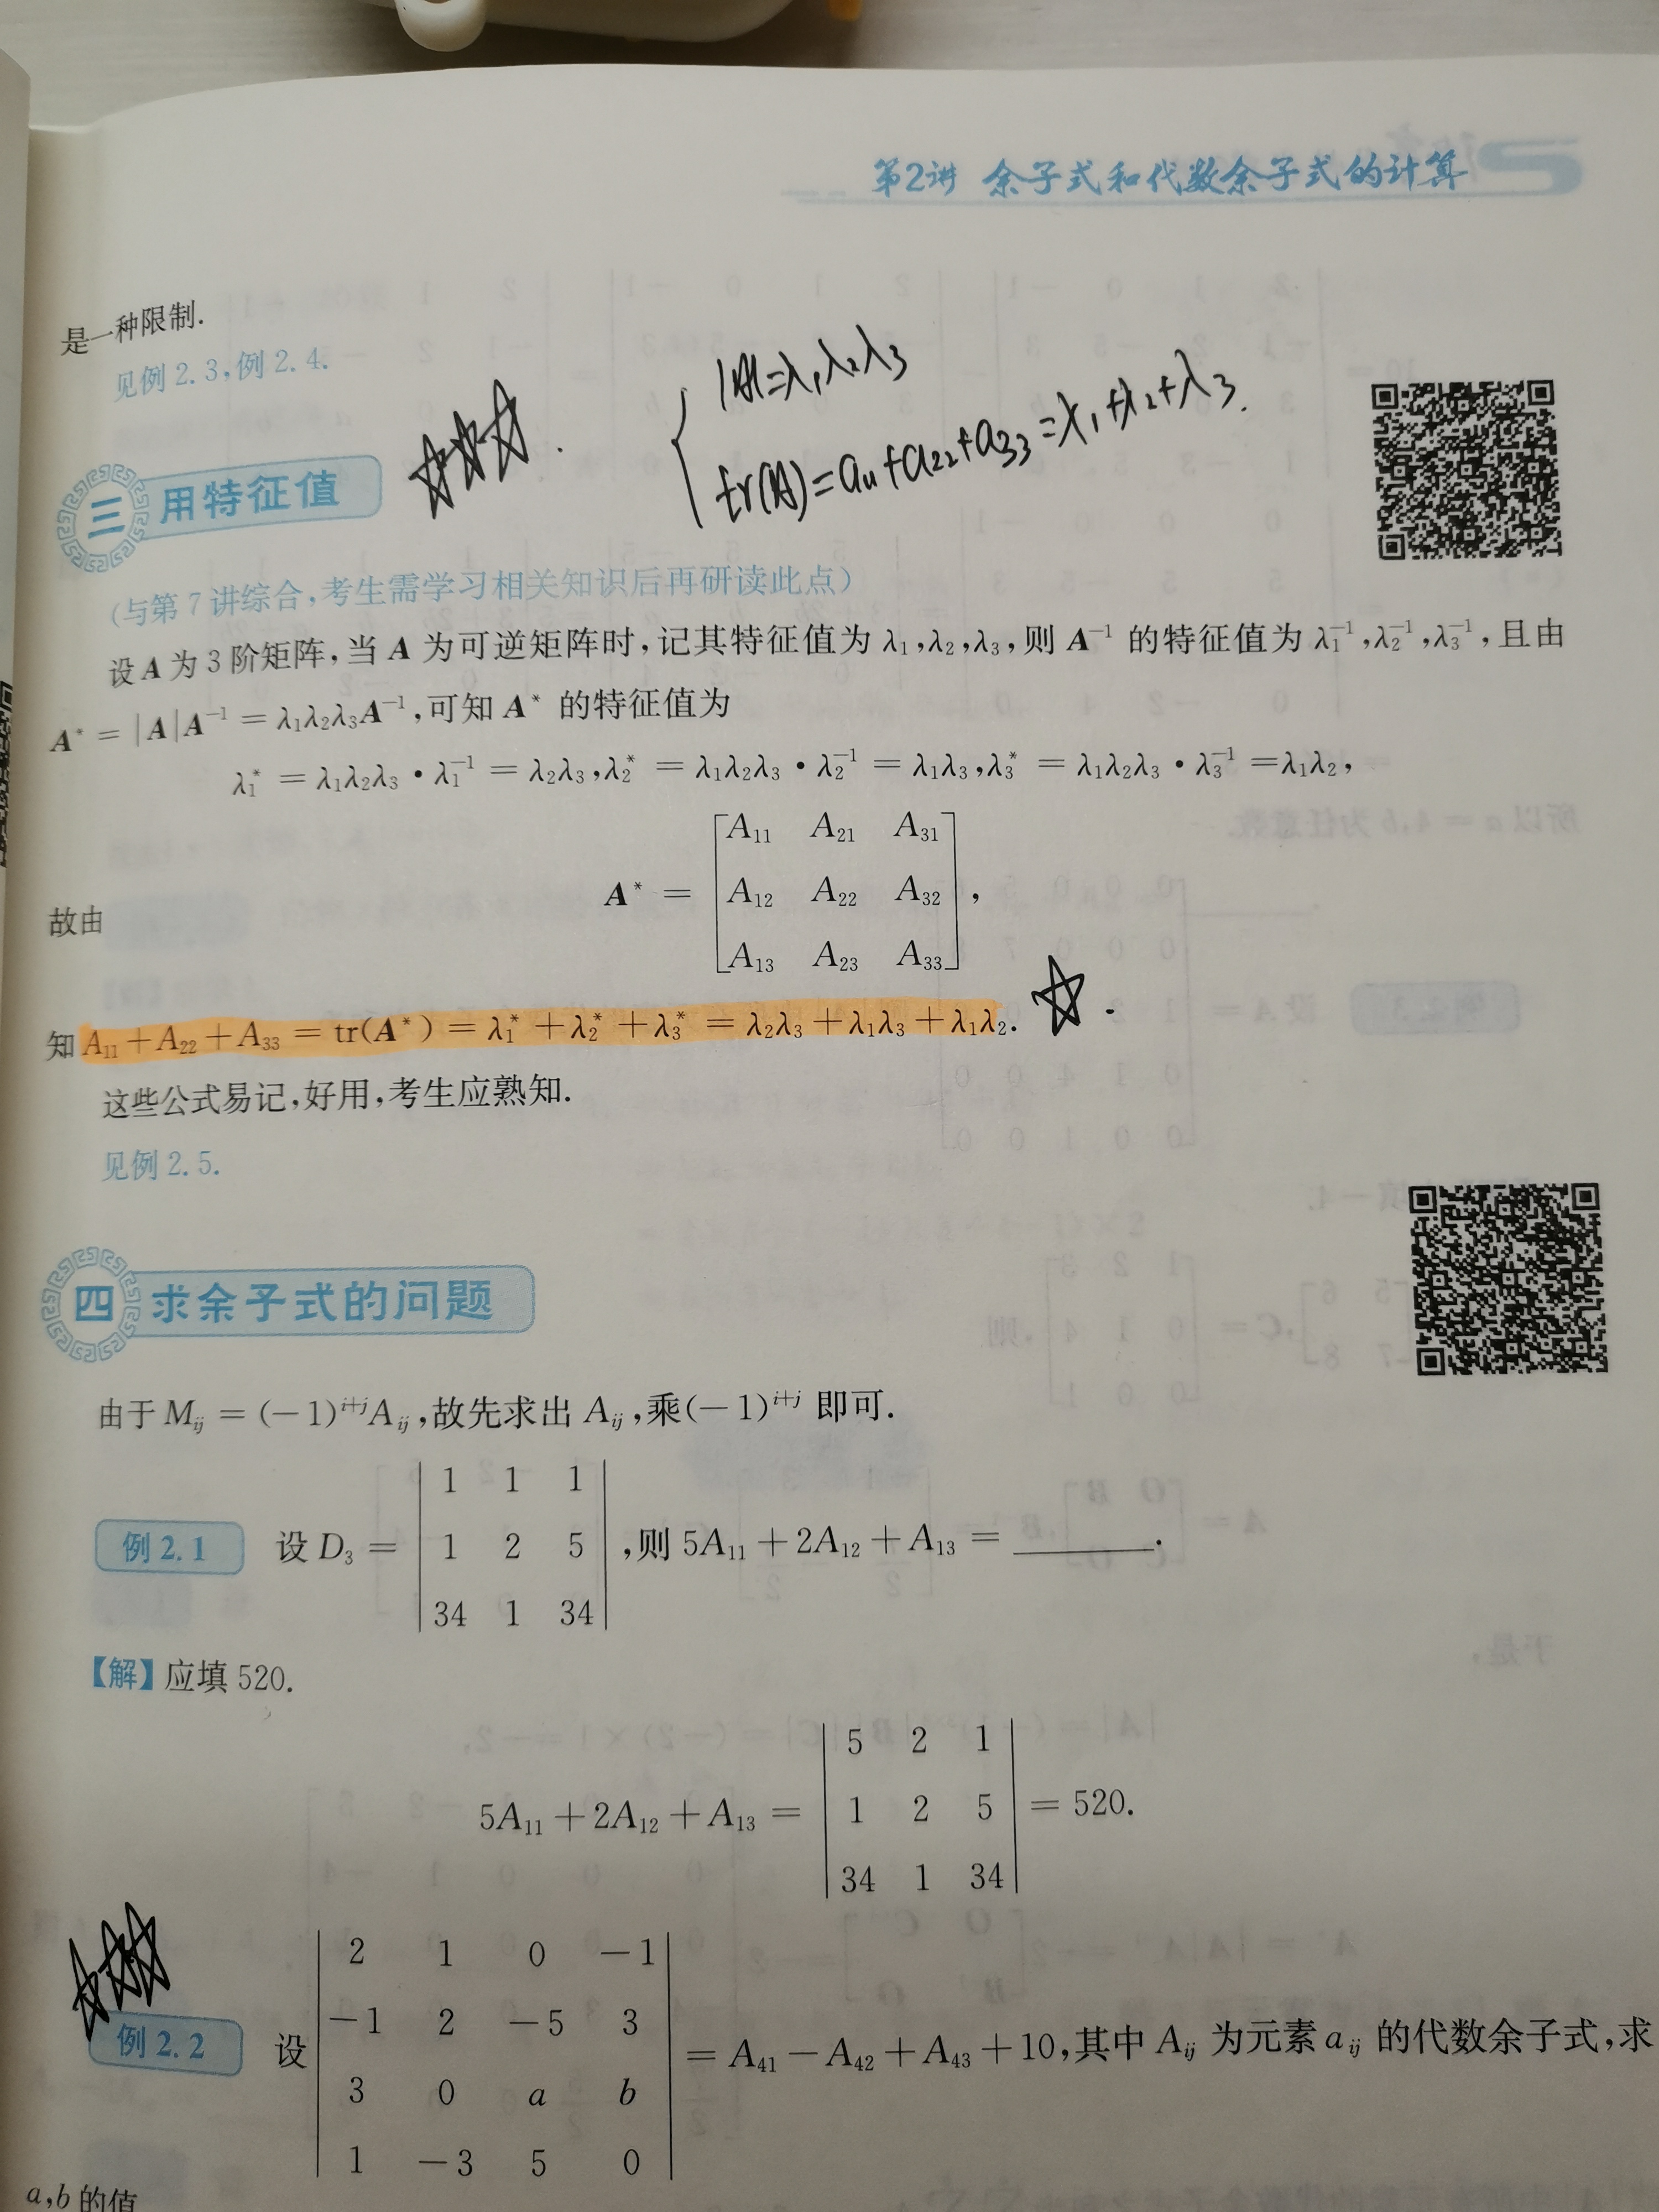 第2讲 余子式和代数余子式的计算
是一种限制.
见例 2.3,例 2.4.
|A|=λ₁λ₂λ₃
tr(A)=a₁₁+a₂₂+a₃₃=λ₁+λ₂+λ₃.
三 用特征值
(与第 7 讲综合,考生需学习相关知识后再研读此点)
设 A 为 3 阶矩阵,当 A 为可逆矩阵时,记其特征值为 λ₁,λ₂,λ₃,则 A⁻¹ 的特征值为 λ₁⁻¹,λ₂⁻¹,λ₃⁻¹,且由
A* = |A|A⁻¹ = λ₁λ₂λ₃A⁻¹,可知 A* 的特征值为
λ₁* = λ₁λ₂λ₃·λ₁⁻¹ = λ₂λ₃,λ₂* = λ₁λ₂λ₃·λ₂⁻¹ = λ₁λ₃,λ₃* = λ₁λ₂λ₃·λ₃⁻¹ =λ₁λ₂,
A₁₁ A₂₁ A₃₁
故由 A* = A₁₂ A₂₂ A₃₂ ,
A₁₃ A₂₃ A₃₃
知 A₁₁+A₂₂+A₃₃ = tr(A*) = λ₁*+λ₂*+λ₃* = λ₂λ₃+λ₁λ₃+λ₁λ₂.
这些公式易记,好用,考生应熟知.
见例 2.5.
四 求余子式的问题
由于 Mᵢⱼ = (-1)ⁱ⁺ʲAᵢⱼ,故先求出 Aᵢⱼ,乘(-1)ⁱ⁺ʲ 即可.
1 1 1
例 2.1 设 D₃ = 1 2 5 ,则 5A₁₁+2A₁₂+A₁₃ = ______.
34 1 34
【解】应填 520.
5 2 1
5A₁₁+2A₁₂+A₁₃ = 1 2 5 = 520.
34 1 34
2 1 0 -1
-1 2 -5 3
例 2.2 设 = A₄₁-A₄₂+A₄₃+10,其中 Aᵢⱼ 为元素 aᵢⱼ 的代数余子式,求
3 0 a b
1 -3 5 0
a,b 的值